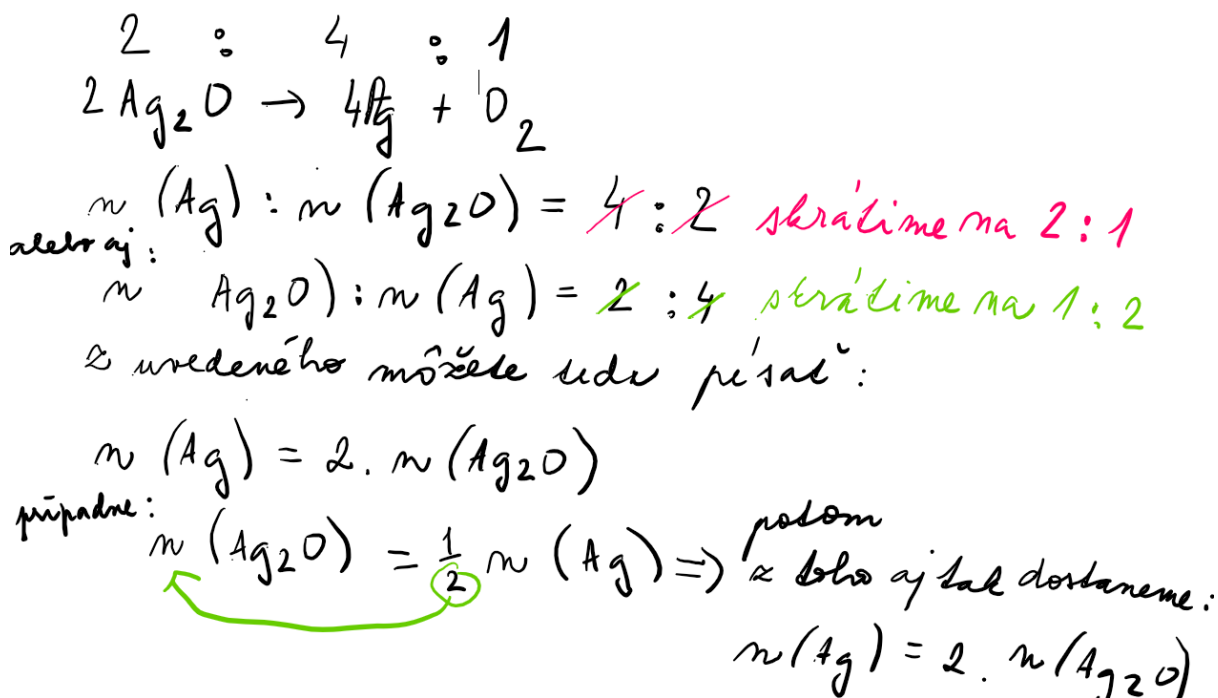 2 : 4 : 1
2 Ag₂O → 4Ag + O₂
n (Ag) : n (Ag₂O) = 4 : 2 skrátime na 2 : 1
alebo aj :
n Ag₂O) : n (Ag) = 2 : 4 skrátime na 1 : 2
z uvedeného môžete teda písať :
n (Ag) = 2 . n (Ag₂O)
prípadne :
n (Ag₂O) = 1/2 n (Ag) ⇒ potom
z toho aj tak dostaneme :
n (Ag) = 2 . n (Ag₂O)